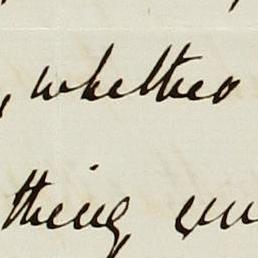 , whether
thing